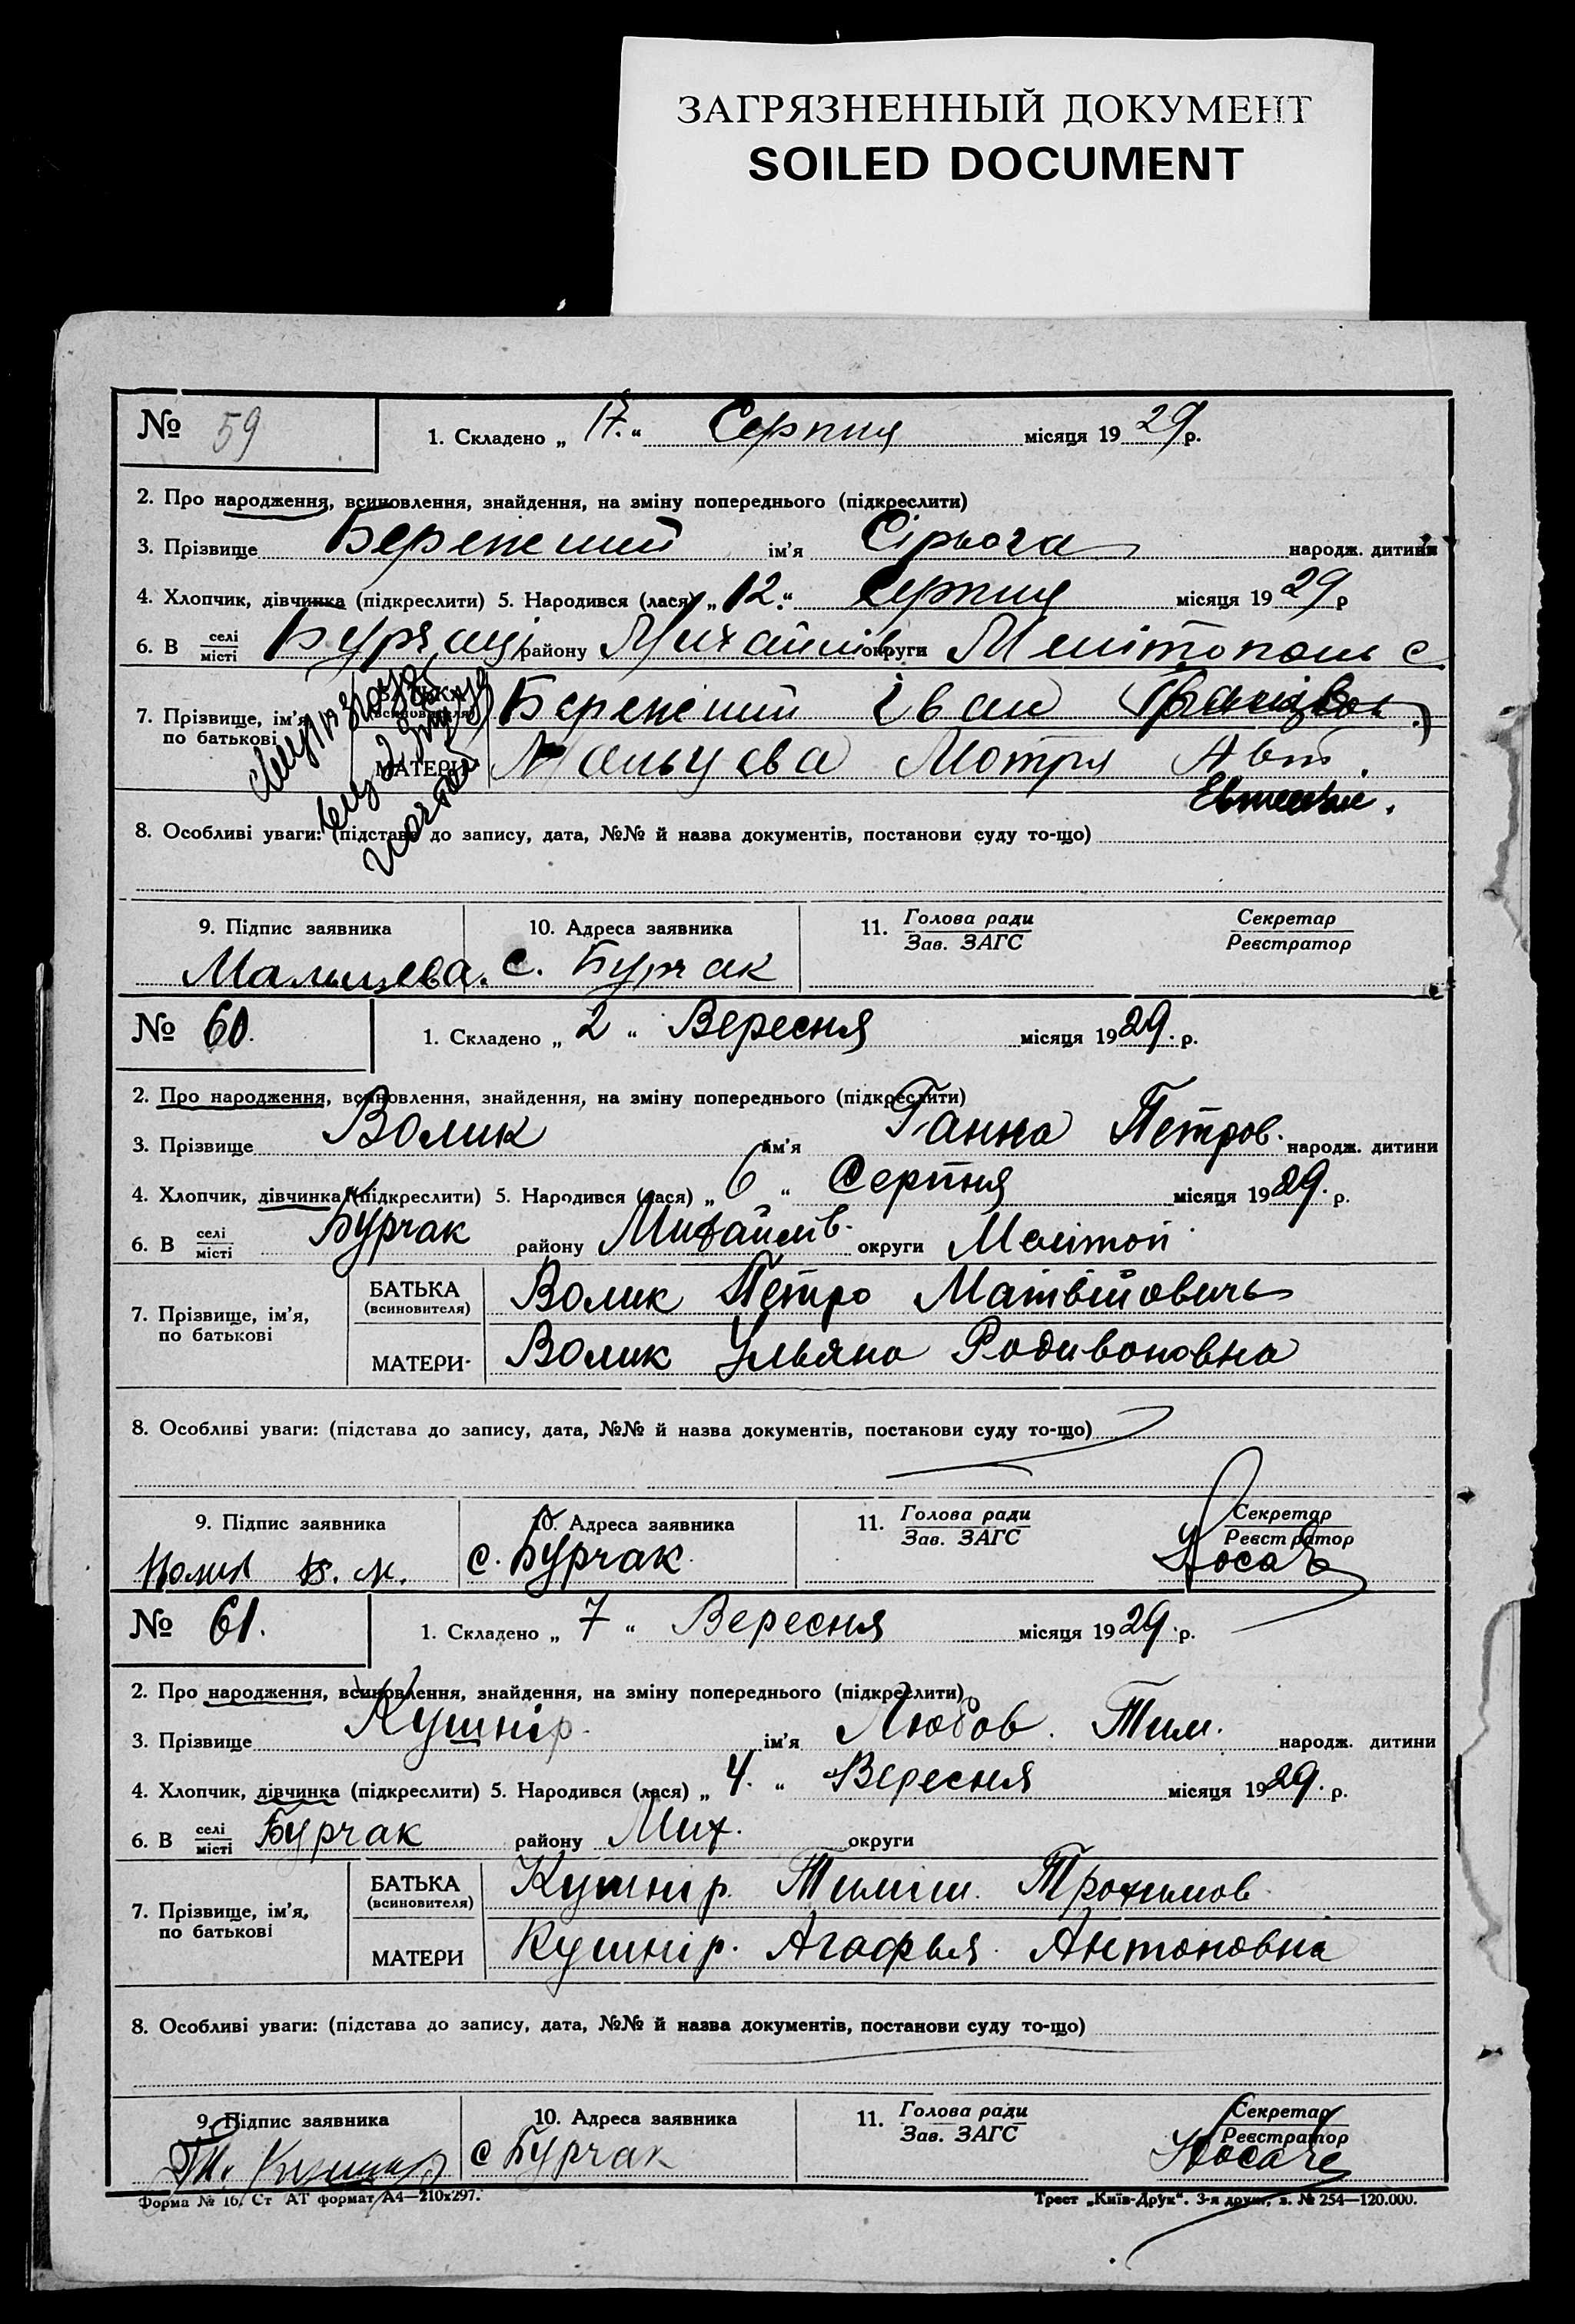 ЗАГРЯЗНЕННЫЙ ДОКУМЕНТ
SOILED DOCUMENT
№ 59
1. Складено „ 17. “ Серпня місяця 1929 р.
2. Про народження, всиновлення, знайдення, на зміну попереднього (підкреслити)
3. Прізвище Бережний ім'я Сірьога народж. дитини
4. Хлопчик, дівчинка (підкреслити) 5. Народився (лася) „ 12. “ Серпня місяця 1929 р
6. В селі місті району округи
7. Прізвище, ім'я, по батькові
БАТЬКА (всиновителя) Бережний Іван
МАТЕРИ Мальцева Мотря Авт.
8. Особливі уваги: (підстава до запису, дата, №№ й назва документів, постанови суду то-що)
9. Підпис заявника 10. Адреса заявника 11. Голова ради Зав. ЗАГС Секретар Реєстратор
Мальцева. с. Бурчак
№ 60.
1. Складено „ 2 “ Вересня місяця 1929. р.
2. Про народження, всиновлення, знайдення, на зміну попереднього (підкреслити)
3. Прізвище Волик ім'я Ганна Петров. народж. дитини
4. Хлопчик, дівчинка (підкреслити) 5. Народився (лася) „ 6 “ Серпня місяця 1929. р.
6. В селі місті Бурчак району Михайлів. округи Мелітоп
7. Прізвище, ім'я, по батькові
БАТЬКА (всиновителя) Волик Петро Матвійовичь
МАТЕРИ Волик Ульяна Родивоновна
8. Особливі уваги: (підстава до запису, дата, №№ й назва документів, постанови суду то-що)
9. Підпис заявника 10. Адреса заявника 11. Голова ради Зав. ЗАГС Секретар Реєстратор
с. Бурчак
№ 61.
1. Складено „ 7 “ Вересня місяця 1929 р.
2. Про народження, всиновлення, знайдення, на зміну попереднього (підкреслити)
3. Прізвище Кушнір. ім'я Любов. Тим. народж. дитини
4. Хлопчик, дівчинка (підкреслити) 5. Народився (лася) „ 4. “ Вересня місяця 1929. р.
6. В селі місті Бурчак району Мих. округи
7. Прізвище, ім'я, по батькові
БАТЬКА (всиновителя) Кушнір. Тиміш. Трохимов
МАТЕРИ Кушнір. Агафья. Антоновна
8. Особливі уваги: (підстава до запису, дата, №№ й назва документів, постанови суду то-що)
9. Підпис заявника 10. Адреса заявника 11. Голова ради Зав. ЗАГС Секретар Реєстратор
с Бурчак
Форма № 16. Ст АТ формат А4—210х297.
Трест „Київ-Друк“. 3-я друк., з. № 254—120.000.